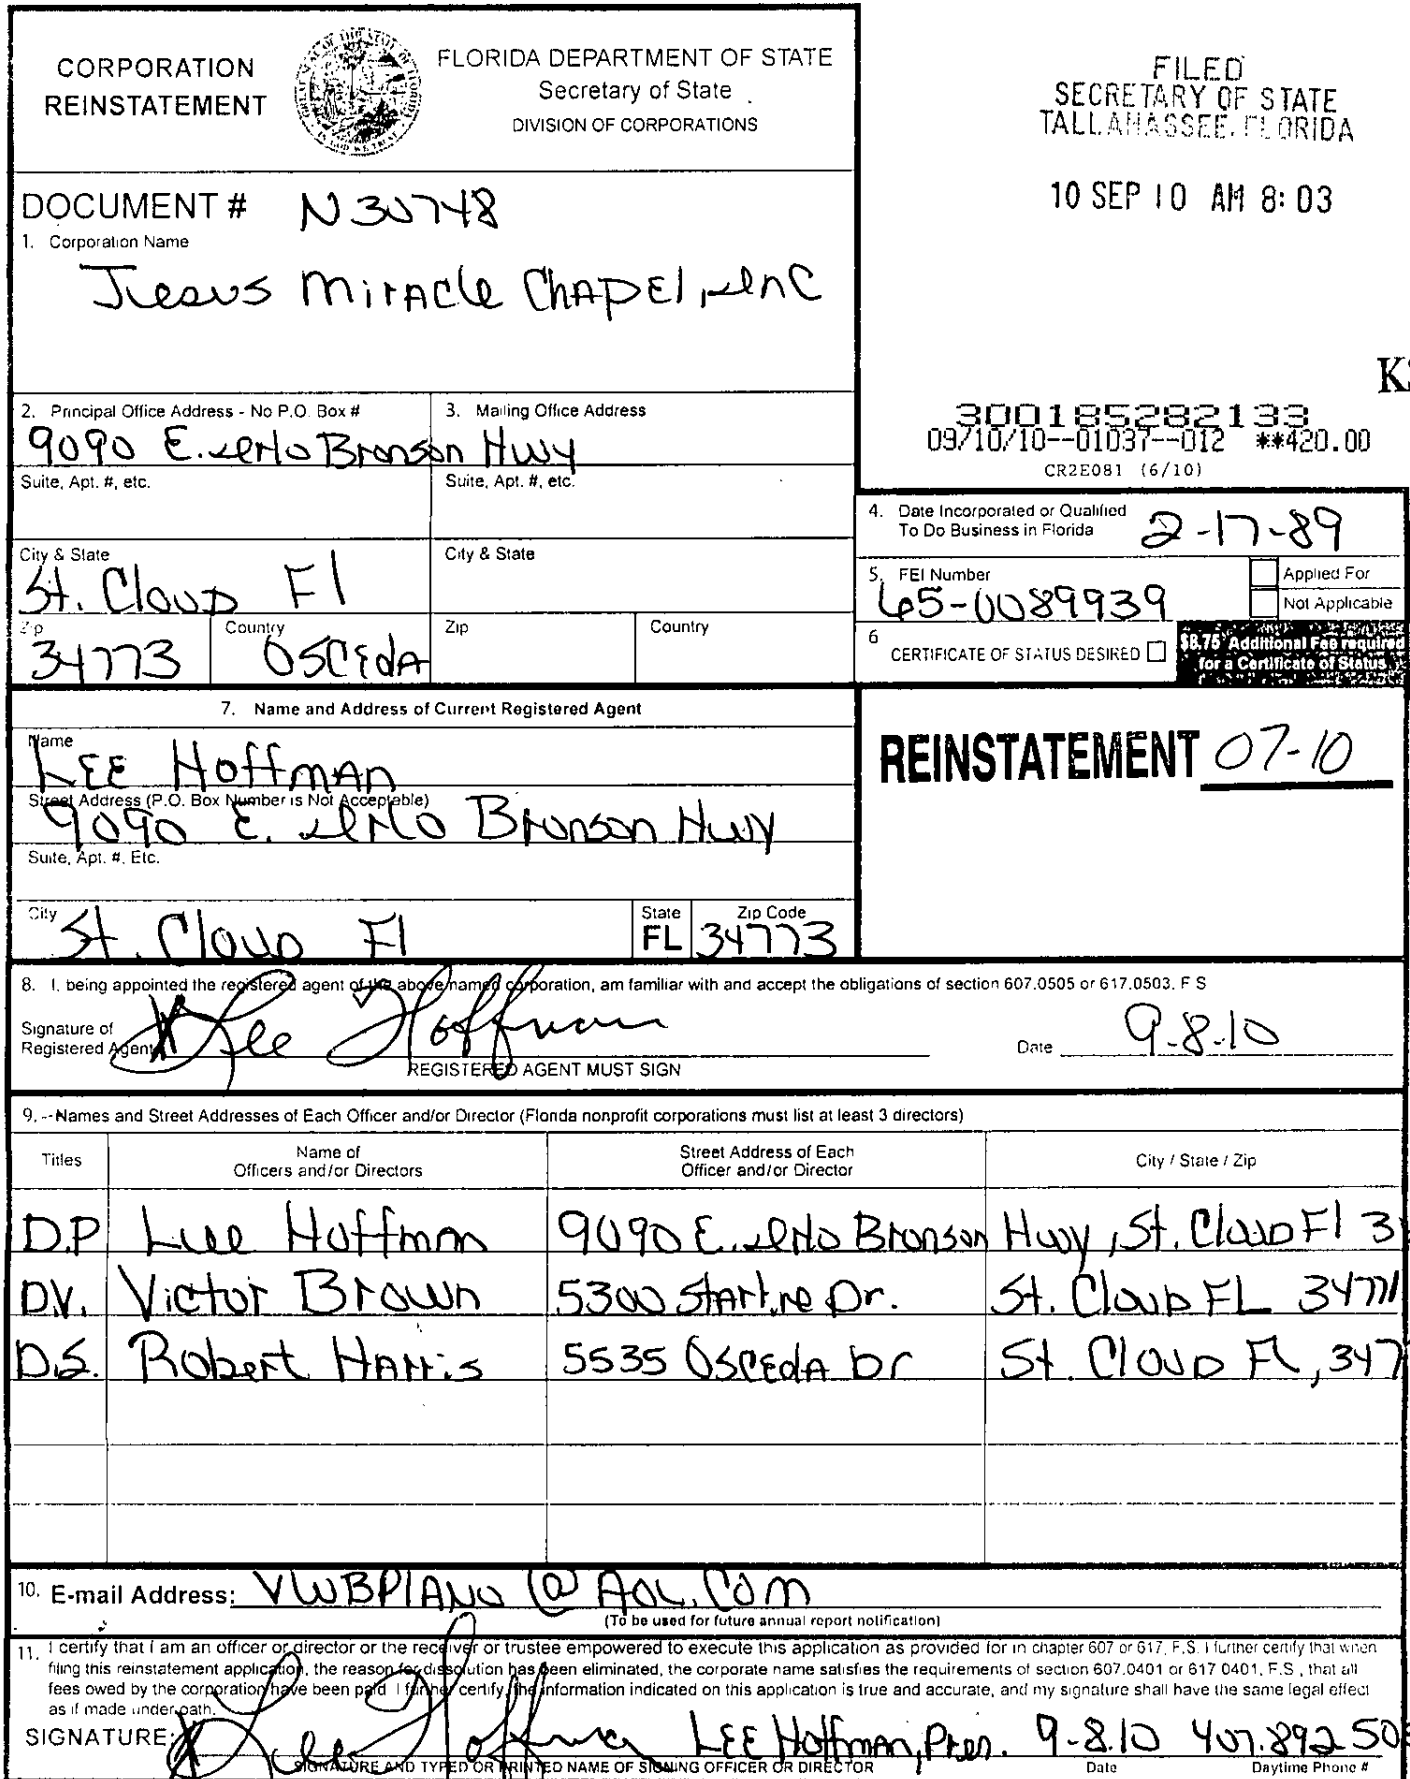 CORPORATION
REINSTATEMENT
FLORIDA DEPARTMENT OF STATE
Secretary of State
DIVISION OF CORPORATIONS
FILED
SECRETARY OF STATE
TALLAHASSEE, FLORIDA
10 SEP 10 AM 8:03
DOCUMENT # N30748
1. Corporation Name
Jesus Miracle Chapel, Inc
2. Principal Office Address - No P.O. Box #
3. Mailing Office Address
9090 E. Irlo Bronson Hwy
Suite, Apt. #, etc.
Suite, Apt. #, etc.
300185282133
09/10/10--01037--012 **420.00
CR2E081 (6/10)
4. Date Incorporated or Qualified
To Do Business in Florida
2-17-89
City & State
St. Cloud Fl
City & State
5. FEI Number
65-0089939
Applied For
Not Applicable
Zip
34773
Country
Osceda
Zip
Country
6 CERTIFICATE OF STATUS DESIRED
$8.75 Additional Fee required
for a Certificate of Status
7. Name and Address of Current Registered Agent
Name
Lee Hoffman
Street Address (P.O. Box Number is Not Acceptable)
9090 E. Irlo Bronson Hwy
Suite, Apt. #, Etc.
City
St. Cloud Fl
State
FL
Zip Code
34773
REINSTATEMENT 07-10
8. I, being appointed the registered agent of the above named corporation, am familiar with and accept the obligations of section 607.0505 or 617.0503, F S
Signature of
Registered Agent
Lee Hoffman
Date 9.8.10
REGISTERED AGENT MUST SIGN
9. Names and Street Addresses of Each Officer and/or Director (Florida nonprofit corporations must list at least 3 directors)
Titles
Name of
Officers and/or Directors
Street Address of Each
Officer and/or Director
City / State / Zip
D.P Lee Hoffman 9090 E. Irlo Bronson Hwy, St. Cloud Fl 3
D.V. Victor Brown 5300 Starline Dr. St. Cloud FL 34771
D.S. Robert Harris 5535 Osceda Dr St. Cloud FL, 347
10. E-mail Address: VWBPIANO@AOL.COM
(To be used for future annual report notification)
11. I certify that I am an officer or director or the receiver or trustee empowered to execute this application as provided for in chapter 607 or 617, F.S. I further certify that when
filing this reinstatement application, the reason for dissolution has been eliminated, the corporate name satisfies the requirements of section 607.0401 or 617 0401, F.S , that all
fees owed by the corporation have been paid I further certify, the information indicated on this application is true and accurate, and my signature shall have the same legal effect
as if made under oath.
SIGNATURE: Lee Hoffman Lee Hoffman, Pres. 9-8.10 407.892.50
SIGNATURE AND TYPED OR PRINTED NAME OF SIGNING OFFICER OR DIRECTOR
Date
Daytime Phone #